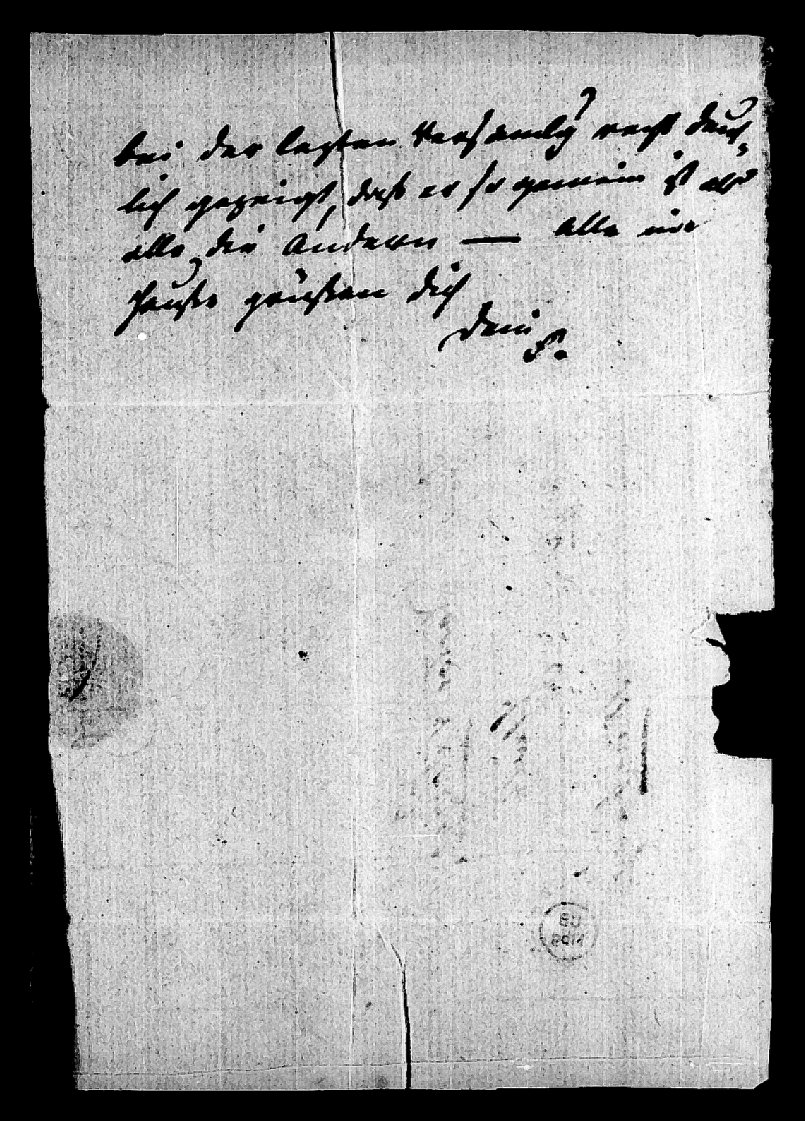 bei der lezten Versamlg recht deut-
lich gezeigt, daß er so gemein ist als
alle die Andern — Alle im
Hause grüßen dich
Dein
F.